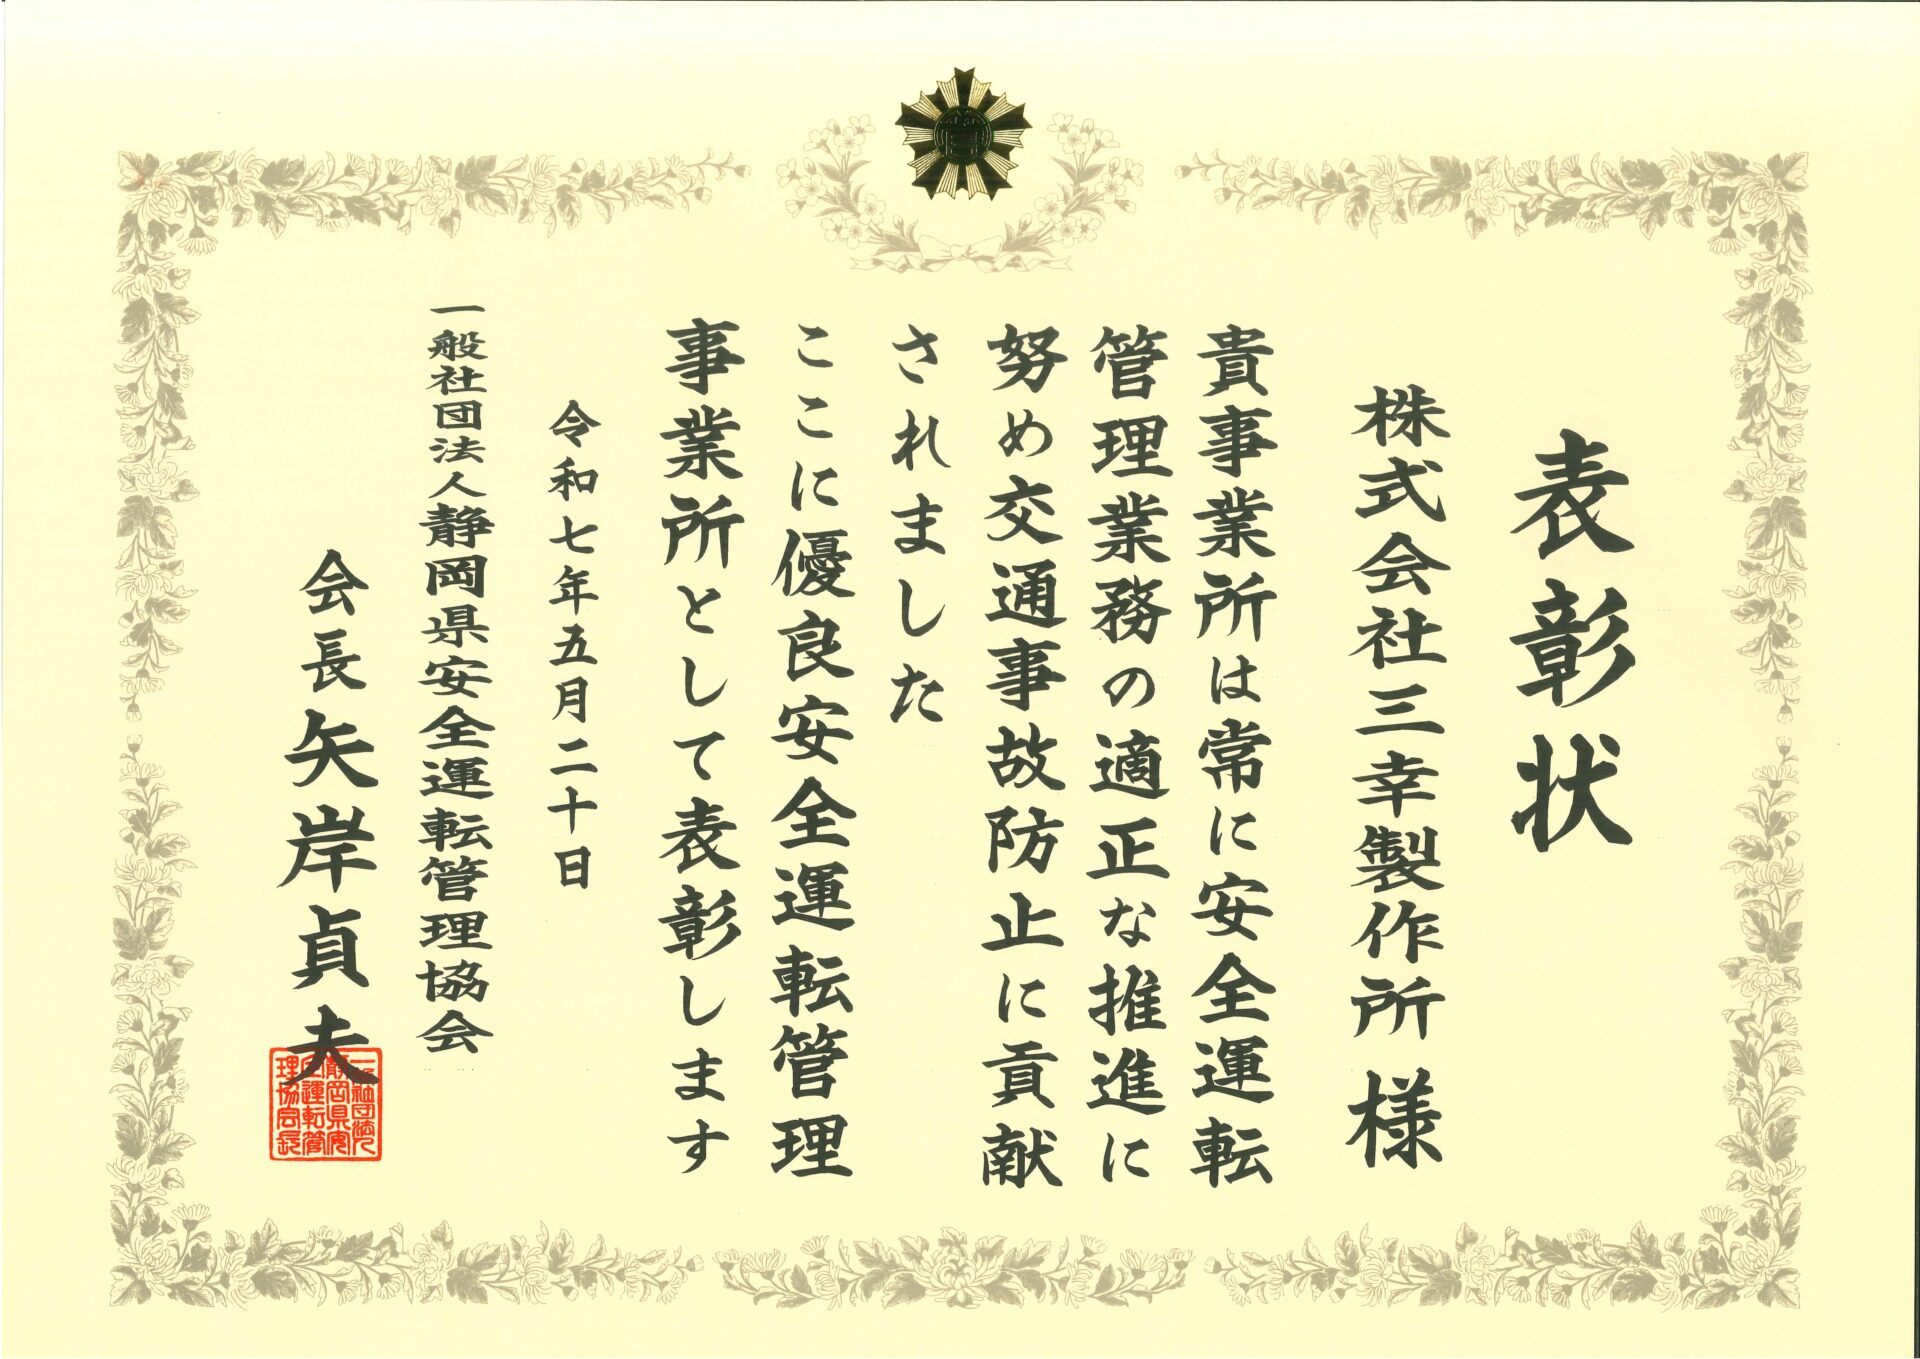 表彰状
株式会社三幸製作所 様
貴事業所は常に安全運転
管理業務の適正な推進に
努め交通事故防止に貢献
されました
ここに優良安全運転管理
事業所として表彰します
令和七年五月二十日
一般社団法人静岡県安全運転管理協会
会長 矢岸貞夫
一般社団法人
静岡県安
全運転管
理協会長